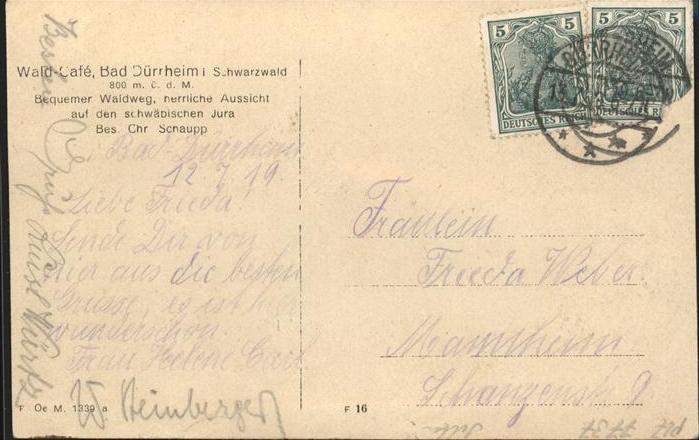 Wald-Café, Bad Dürrheim i Schwarzwald
800 m. ü. d. M.
Bequemer Waldweg, herrliche Aussicht
auf den schwäbischen Jura
Bes. Chr Schaupp
Bad-Dürrheim
12 7 19.
Liebe Frieda!
Sende Dir von
hier aus die besten
Grüsse, es ist hier
wunderschön.
Frau Helene
Besten Gruß
W. Steinberger
F Oe M. 1339 a
F 16
5 5
DEUTSCHES REICH
5 5
DEUTSCHES REI
DÜRRHEIM
Fräulein
Frieda Weber
Mannheim